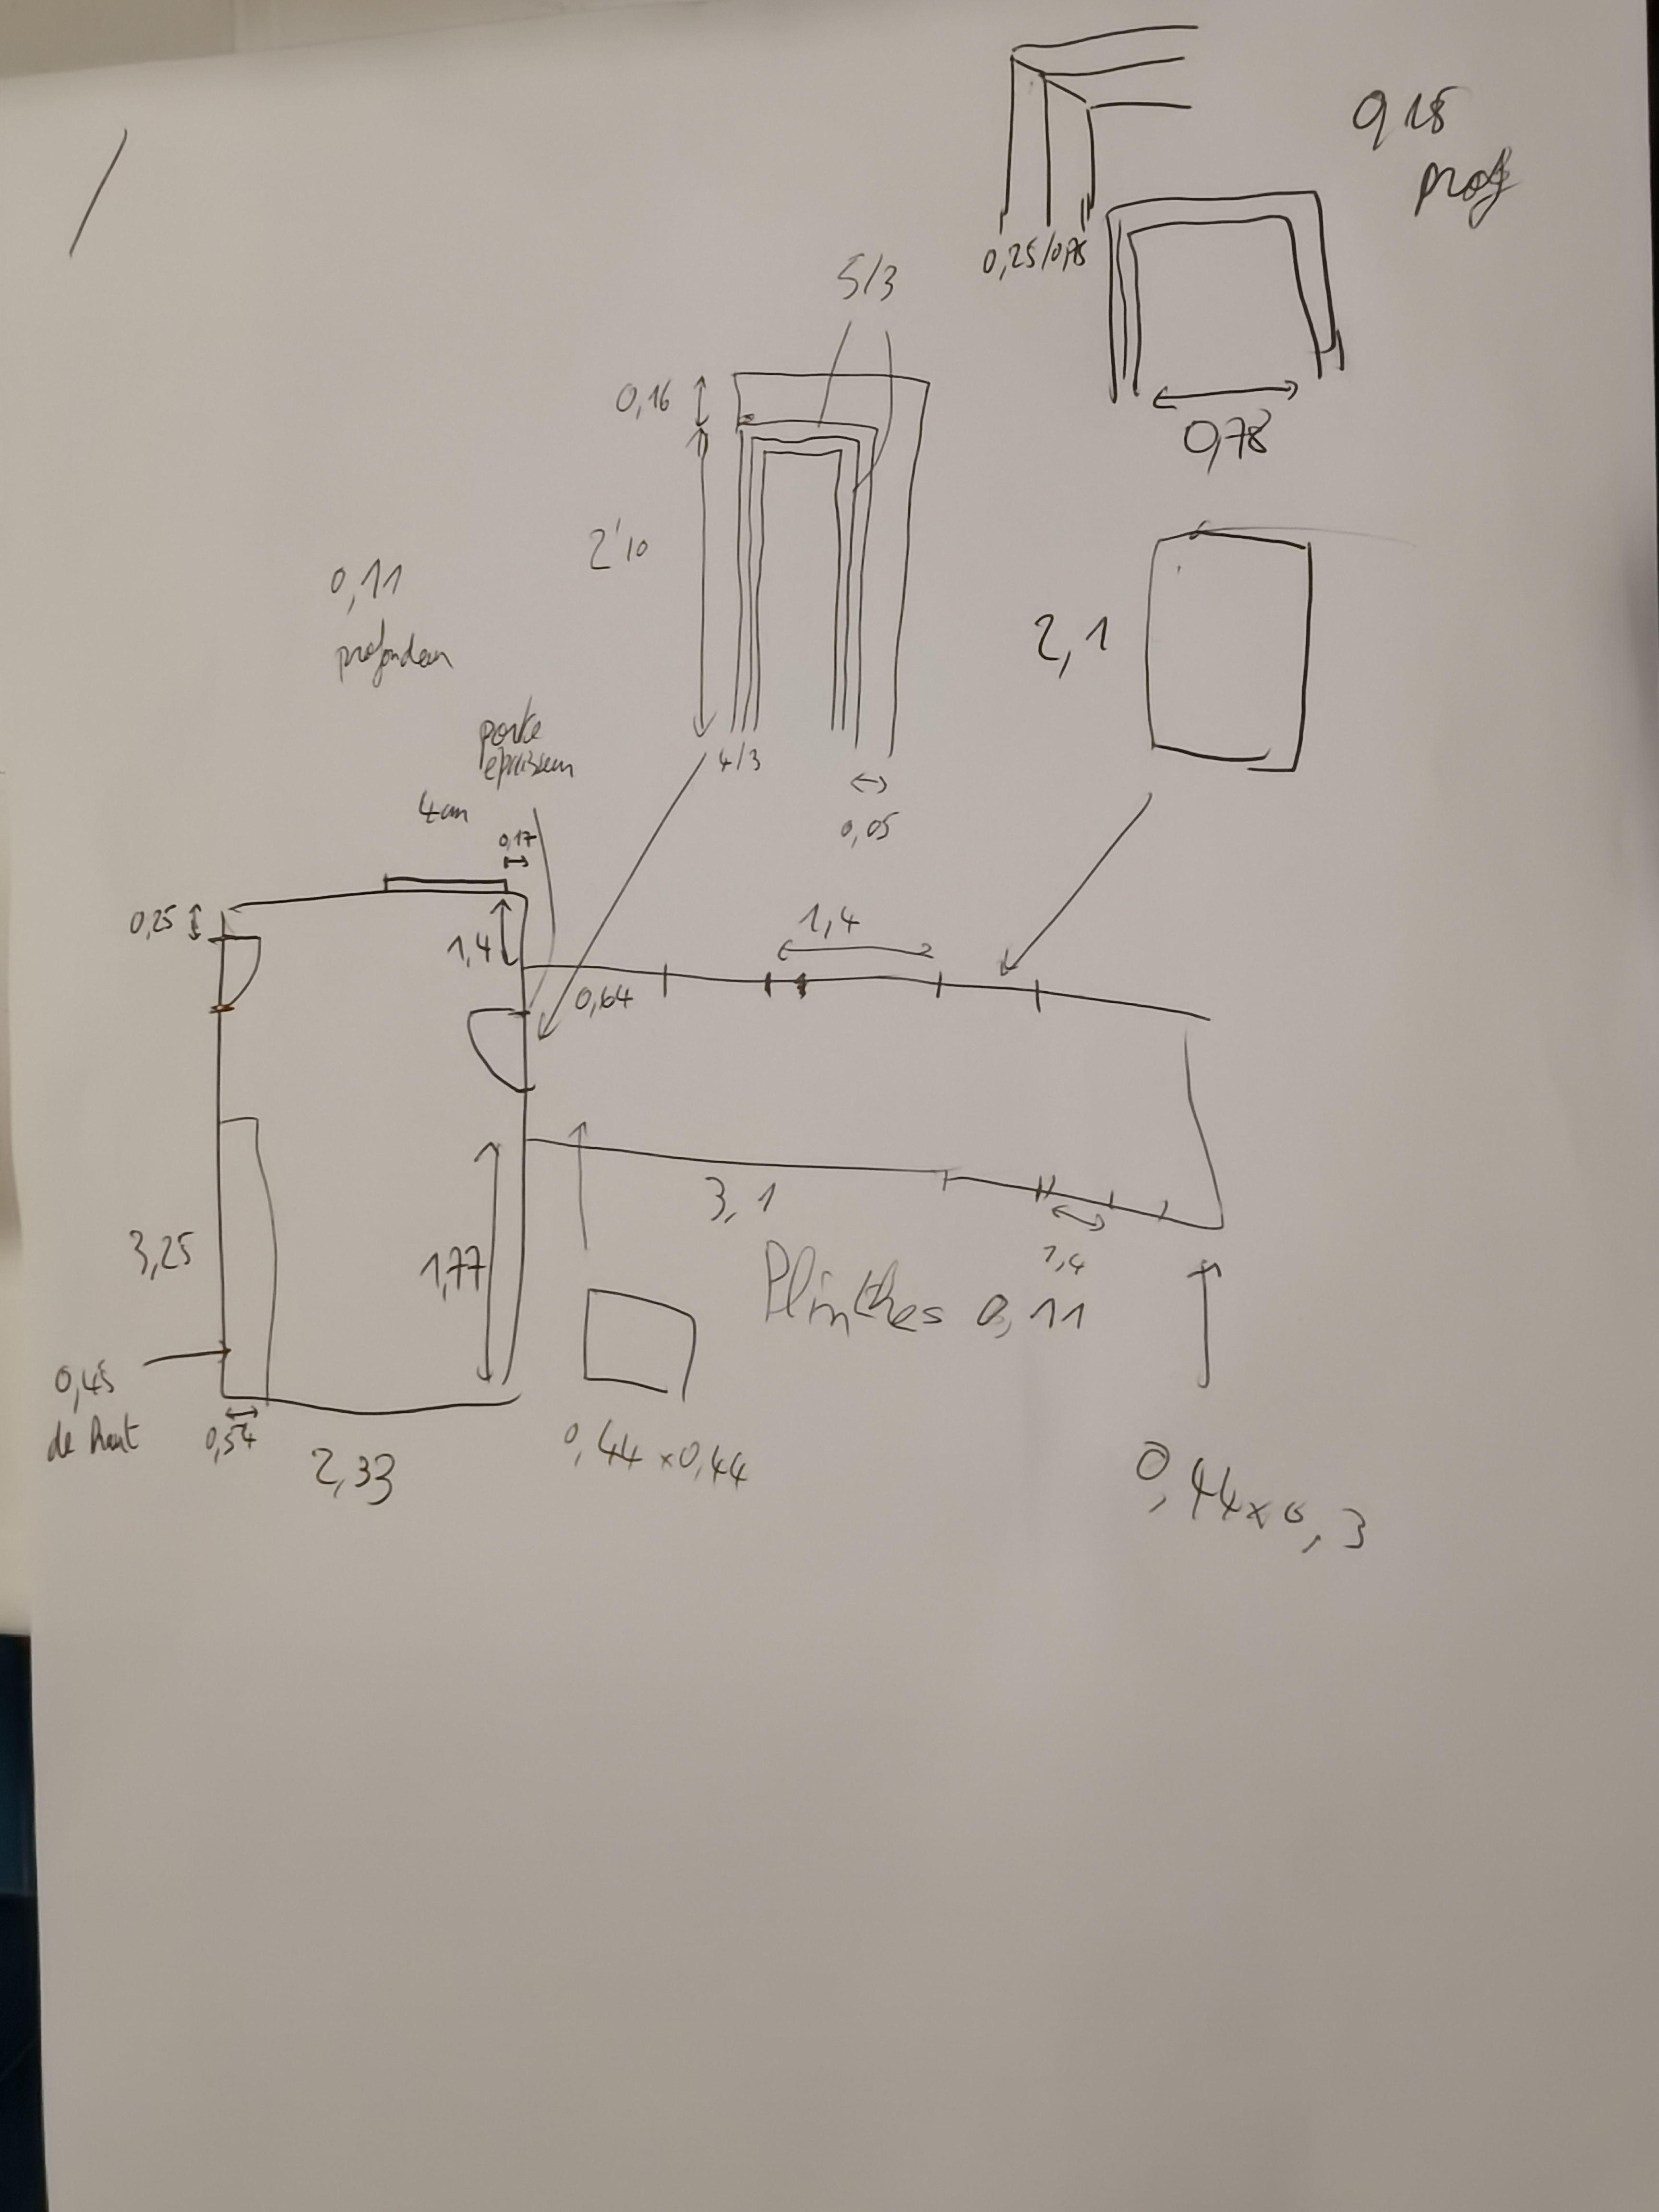 0,18
prof
0,25/0,75
5/3
0,16
0,78
2,10
0,11
profondeur
2,1
porte
epaisseur
4/3
4cm
0,05
0,17
0,25
1,4
1,4
0,64
3,1
3,25
1,77
1,4
Plinthes 0,11
0,45
de haut
0,54
2,33
0,44 x 0,44
0,44 x 0,3